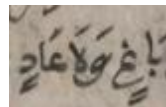 بَاغٍ وَلَا عَادٍ